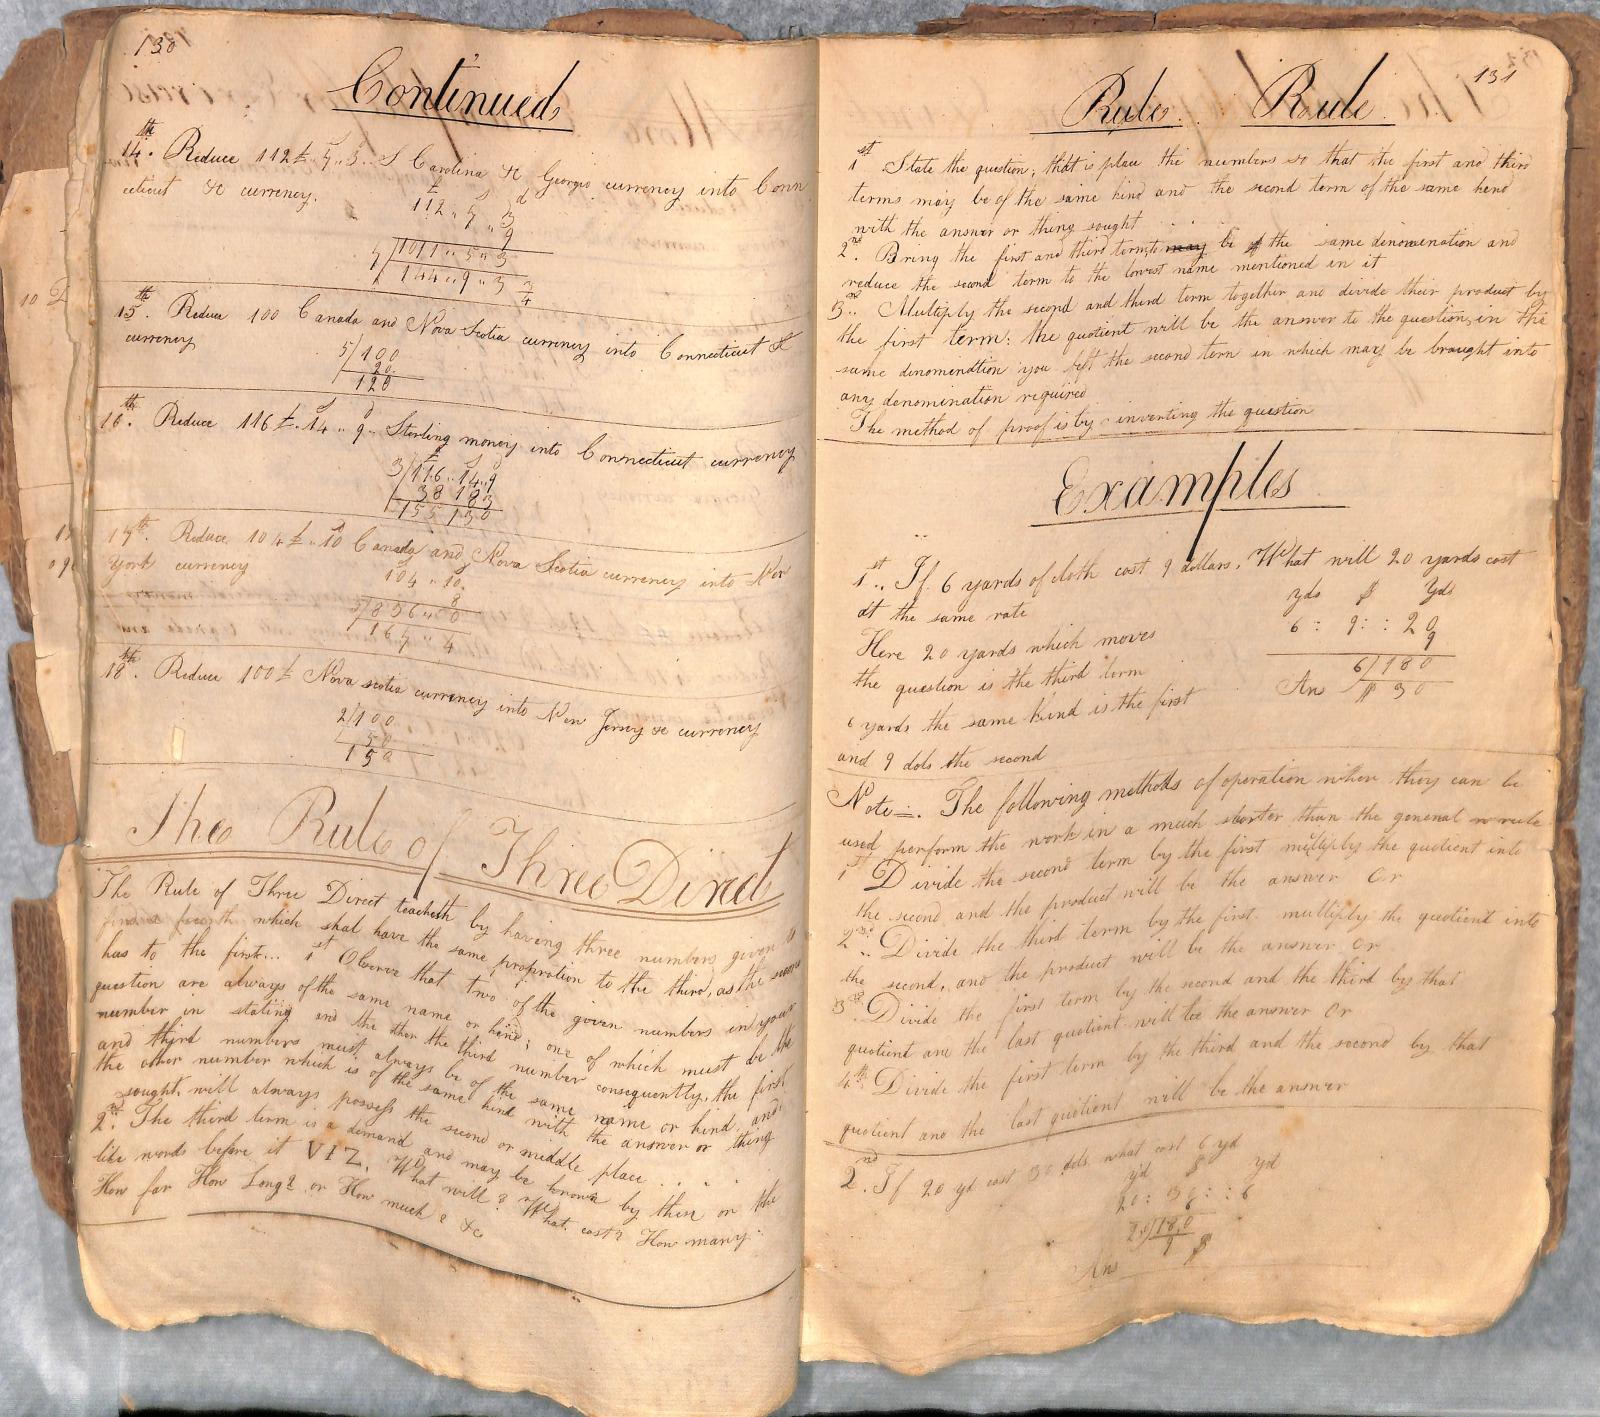 130
Continued
14th. Reduce 112£.. 7.. 3.. S Carolina &c Georgio currency into Conn
ecticut &c currency.
£ s d
112.. 7.. 3
9
7/1011.. 5.. 3
144.. 9.. 3 3/4
15th. Reduce 100 Canada and Nova Scotia currency into Connecticut &
currency
5/100
20
120
16th. Reduce 116£.. 14s.. 9d.. Sterling money into Connecticut currency
£ s d
3/116.. 14.. 9
38 18 3
155 13 0
17th. Reduce 104£.. 10s Canada and Nova Scotia currency into New
York currency
104.. 10
8
5/836.. 0
167.. 4
18th. Reduce 100£ Nova scotia currency into New Jersey &c currency
2/100
50
150
The Rule of Three Direct
The Rule of Three Direct teacheth by having three numbers given to
find a fourth which shal have the same propration to the third, as the second
has to the first... 1st Observe that two of the given numbers in your
question are always of the same name or kind; one of which must be the
number in stating and the other the third number consequently, the first
and third numbers must always be of the same name or kind. and
the other number which is of the same kind with the answer or thing
sought, will always possess the second or middle place....
2nd. The third term is a demand and may be known by these or the
like words before it VIZ. What will? What cost? How many
How far How Long? or How much? &c
131
Rule. Rule.
1st State the question; that is place the numbers so that the first and third
terms may be of the same kind and the second term of the same kend
with the answer or thing sought
2nd. Bring the first and third term to may be of the same denomenation and
reduce the second term to the lowest name mentioned in it
3rd.. Multiply the second and third term together and divide their product by
the first term: the quotient will be the answer to the question, in the
same denomendtion you left the second term in which may be braught into
any denomination required
The method of proof is by inventing the question
Examples
1st.. If 6 yards of cloth cost 9 dollars. What will 20 yards cost
at the same rate
yds $ Yds
Here 20 yards which moves
6 : 9 : : 20
9
the question is the third term
6/180
Ans $ 30
6 yards the same kind is the first
and 9 dols the second
Note=. The following methods of operation when they can be
used perform the work in a much shorter than the general rule
1st Divide the second term by the first multiply the quotient into
the second and the product will be the answer Or
2nd.. Divide the third term by the first. multiply the quotient into
the second, and the product will be the answer Or
3rd. Divide the first term by the second and the third by that
quotient and the last quotient will be the answer Or
4th. Divide the first term by the third and the second by that
quotient and the last quotient will be the answer
2nd. If 20 yd cost 30 dols what cost 6 yd
yd $ yd
20 : 30 : : 6
2.0/18.0
9 $
Ans